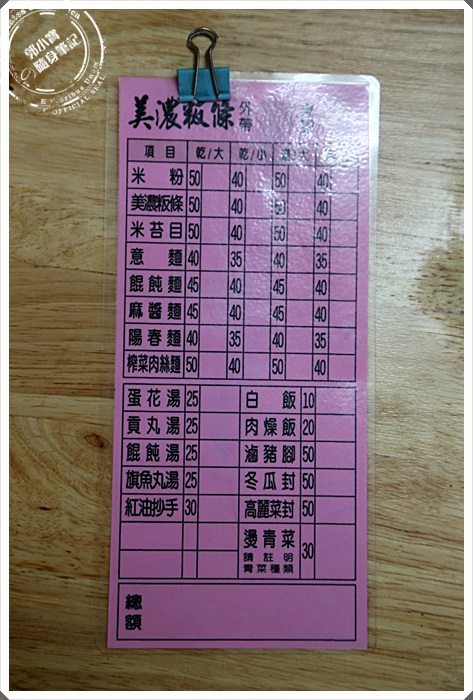 郭小寶
の隨身筆記
E Pluribus Unum
OFFICIAL SEAL
美濃粄條 外帶
項目 乾/大 乾/小 湯/大
米粉 50 40 50 40
美濃粄條 50 40 50 40
米苔目 50 40 50 40
意麵 40 35 40 35
餛飩麵 45 40 45 40
麻醬麵 45 40 45 40
陽春麵 40 35 40 35
榨菜肉絲麵 50 40 50 40
蛋花湯 25 白飯 10
貢丸湯 25 肉燥飯 20
餛飩湯 25 滷豬腳 50
旗魚丸湯 25 冬瓜封 50
紅油抄手 30 高麗菜封 50
燙青菜 30
請註明
青菜種類
總額